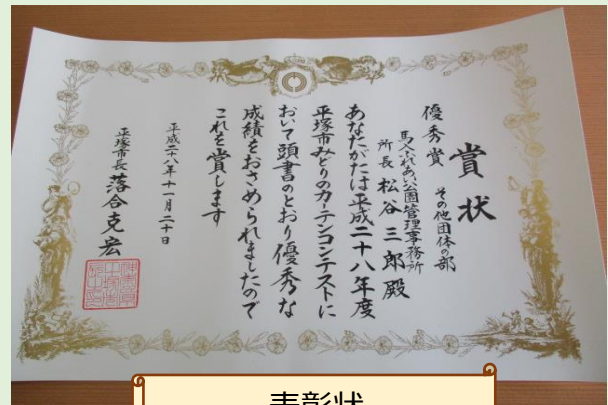 賞状
その他団体の部
優秀賞
馬入ふれあい公園管理事務所
所長 松谷三郎殿
あなたがたは平成二十八年度
平塚市みどりのカーテンコンテストに
おいて頭書のとおり優秀な
成績をおさめられましたので
これを賞します
平成二十八年十一月二十日
平塚市長 落合克宏
表彰状